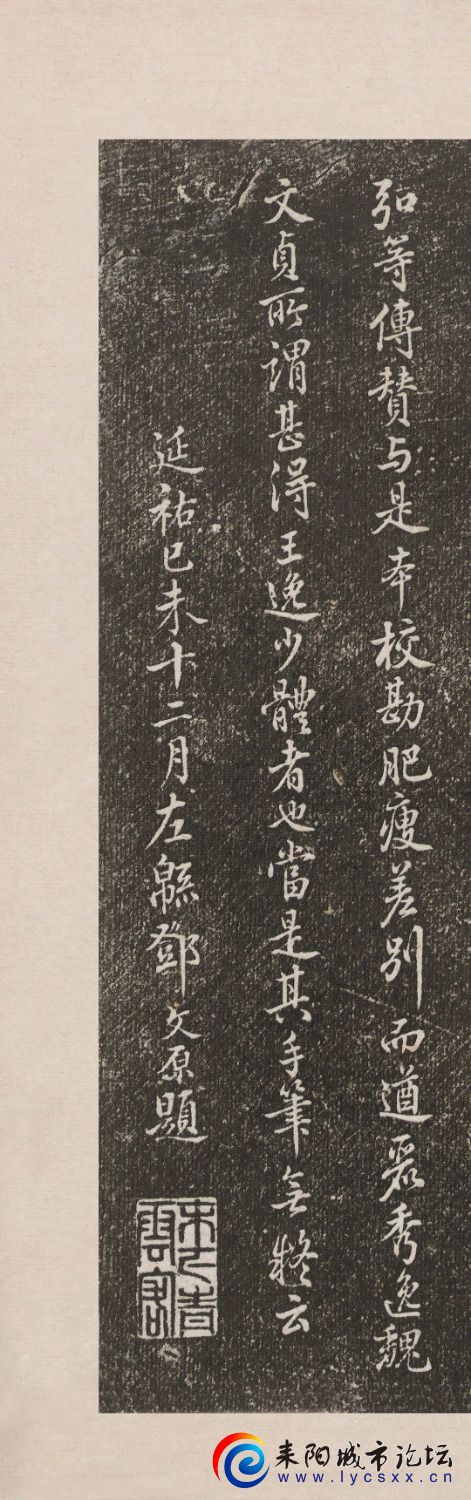 弘等傳賛与是本校勘肥瘦差别而遒麗秀逸魏
文貞所謂甚淂王逸少體者也當是其手筆無疑云
延祐己未十二月左緜鄧文原題
耒阳城市论坛
www.lycsxx.cn